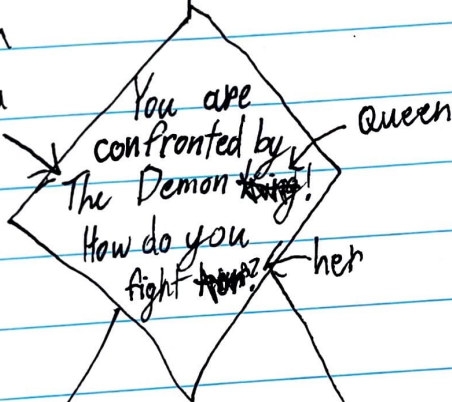 You are
confronted by
The Demon king!
Queen
How do you
fight him?
her